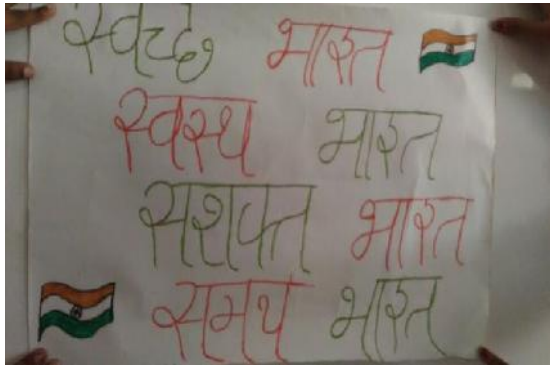 स्वच्छ भारत
स्वस्थ भारत
सशक्त भारत
समथ भारत